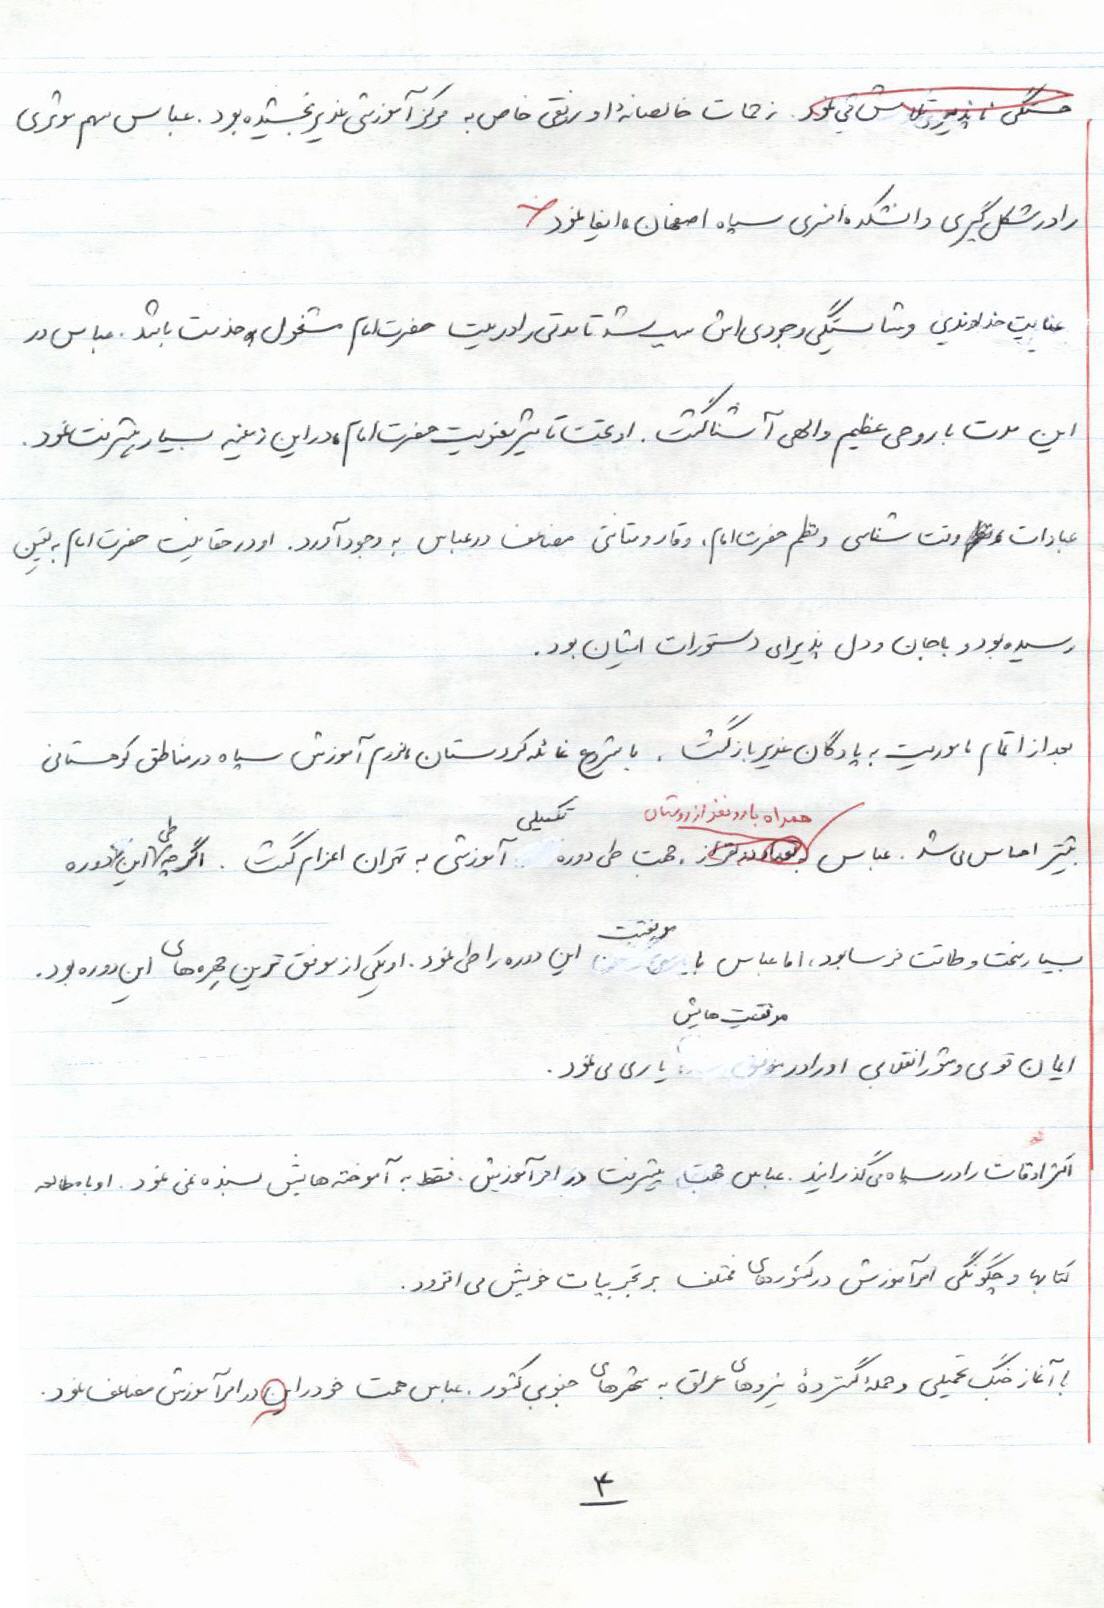 خستگی ناپذیر تلاش می نمود. زحمات خالصانهٔ او رونقی خاص به مرکز آموزشی غدیر بخشیده بود. عباس سهم موثری
را در شکل گیری دانشکده افسری سپاه اصفهان، ایفا نمود
عنایت خداوندی و شایستگی وجودی اش سبب شد تا مدتی را در بیت حضرت امام مشغول خدمت باشد. عباس در
این مدت با روحی عظیم و الهی آشنا گشت. او تحت تاثیر معنویت حضرت امام، در این زمینه بسیار پیشرفت نمود.
عبادات، وقت شناسی و نظم حضرت امام، وقار و متانتی مضاعف در عباس به وجود آورد. او در حقانیت حضرت امام به یقین
رسیده بود و با جان و دل پذیرای دستورات ایشان بود.
بعد از اتمام ماموریت به پادگان غدیر بازگشت. با شروع غائله کردستان، لزوم آموزش سپاه در مناطق کوهستانی
همراه با دو نفر از دوستان تکمیلی طی
بیشتر احساس می شد. عباس جهت طی دوره آموزشی به تهران اعزام گشت. اگرچه این دوره
موفقیت
بسیار سخت و طاقت فرسا بود، اما عباس با این دوره را طی نمود. او یکی از موفق ترین چهره های این دوره بود.
موفقیت هایش
ایمان قوی و شور انقلابی او را در یاری می نمود.
اکثر اوقات را در سپاه می گذرانید. عباس جهت پیشرفت در امر آموزش، فقط به آموخته هایش بسنده نمی نمود. او با مطالعه
کتابها و چگونگی امر آموزش در کشورهای مختلف بر تجربیات خویش می افزود.
با آغاز جنگ تحمیلی و حملهٔ گستردهٔ نیروهای عراق به شهرهای جنوبی کشور. عباس همت خود را در امر آموزش مضاعف نمود.
۴